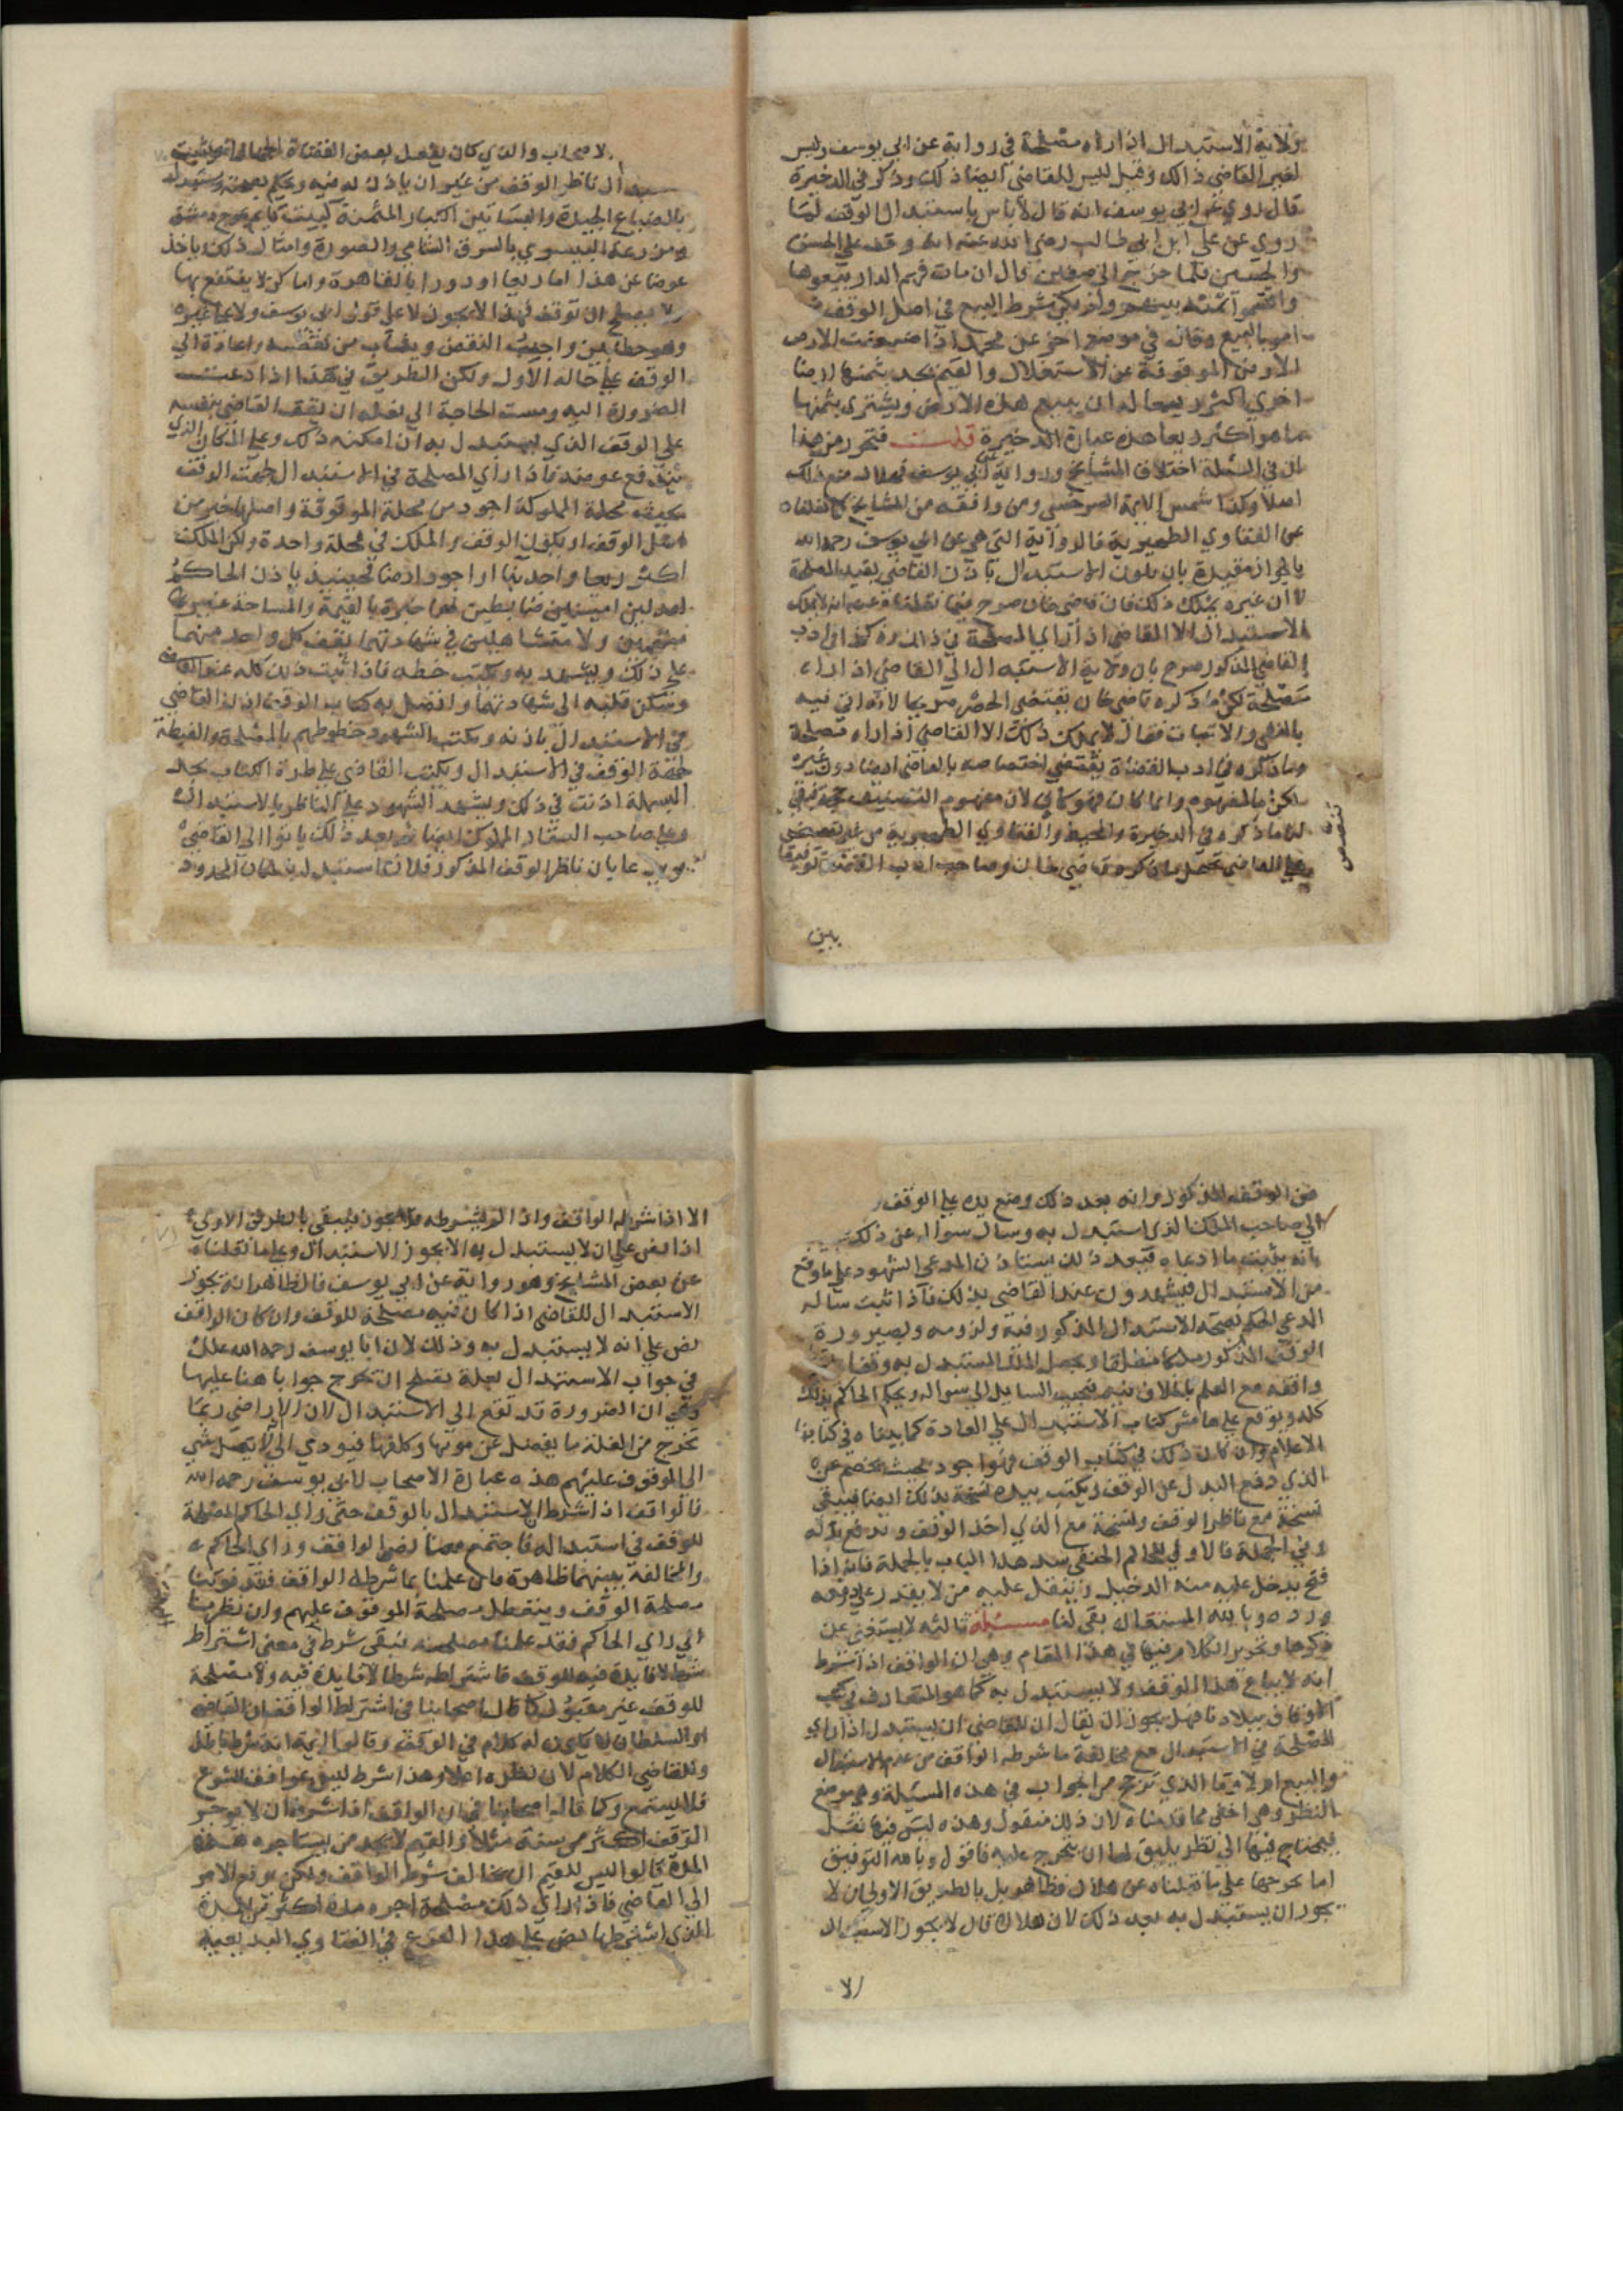 ولاية الاستبدال اذا راه مصلحة في رواية عن ابي يوسف وليس
لغير القاضي ذالك وقيل ليس للقاضي ايضا ذلك وذكر في الذخيرة
قال روي عن ابي يوسف انه قال لا باس باستبدال الوقف لما
روي عن علي ابن ابي طالب رضي الله عنه انه وقف علي الحسن
والحسين فلما خرج الي صفين قال ان مات فهم الدار بيعوها
واقسموا ثمنها بينهم ولم يكن شرط البيع في اصل الوقف ثم
امر بالبيع وقال في موضع اخر عن محمد اذا ضعفت الارض
الارض الموقوفة عن الاستغلال والقيم يجد بثمنها ارضا
اخري اكثر ريعا له ان يبيع هذه الارض ويشتري بثمنها
ما هو اكثر ريعا هذه عبارة الذخيرة قلت فتحرر من هذا
ان في المسئلة اختلاف المشايخ ورواية عن ابي يوسف فهلال منع ذلك
اصلا وكذا شمس الايمة السرخسي ومن وافقه من المشايخ كما نقلناه
عن الفتاوي الظهيرية فالرواية التي هي عن ابي يوسف رحمه الله
بالجواز مقيدة بان يكون الاستبدال باذن القاضي بقيد المصلحة
لا ان غيره يملك ذلك فان قاضي خان صرح فيما نقلناه عنه انه لا يملك
الاستبدال الا القاضي اذا راي المصلحة في ذالك وكذا في ادب
القاضي المذكور صرح بان ولاية الاستبدال الي القاضي اذا راه
مصلحة لكن ما ذكره قاضي خان يقتضي الحصر صريحا لانه اتي فيه
بالنفي والاثبات فقال لا يملك ذلك الا القاضي اذا راه مصلحة
وما ذكره في ادب القضاة يقتضي اختصاصه بالقاضي ايضا دون غيره
لكن بالمفهوم وايما كان فهو كافي لان مفهوم التصنيف حجة فبقي
لنا ما ذكره في الذخيرة والمحيط والفتاوي الظهيرية من غير تنصيص
علي القاضي نحمل ما ذكره قاضي خان وصاحب ادب القضاة توفيقا
تنصيص
بين
الاصحاب والذي كان يفعل بعض القضاة
ال ناظر الوقف من غير ان ياذن له فيه ويحكم بصحته ويستبدل
بالضياع الجيدة والبساتين الكبار المثمنة كبيت
ومزرعة البيسوي بالشرق الشامي والصورة وامثال ذلك ياخذ
عوضا عن هذا اما ربعا او دورا بالقاهرة واماكن لا ينتفع بها
ولا يصلح ان توقف فهذا لا يجوز لا علي قول ابي يوسف ولا علي غيره
وهو خطا بين واجب النقض ويثاب من نقضه واعاده الي
الوقف علي حاله الاول ولكن الطريق في هذا اذا دعت
الضرورة اليه ومست الحاجة الي فعله ان يقف القاضي بنفسه
علي الوقف الذي يستبدل به ان امكنه ذلك وعلي المكان الذي
يدفع عوضه فاذا راي المصلحة في الاستبدال لجهة الوقف
بحيث محلة المملوكة اجود من محلة الموقوفة واصلها خير من
اصل الوقف او يكون الوقف والملك في محلة واحدة ولكن الملك
اكثر ريعا واحد بنا او اجود ارضا فحينيذ ياذن الحاكم
لعدلين امينين ضابطين لهما خبرة بالقيمة والمساحة غير
متهمين ولا متساهلين في شهادتهما يقف كل واحد منهما
علي ذلك ويشهد به ويكتب خطه فاذا ثبت ذلك كله عند القاضي
وسكن قلبه الي شهادتهما واتصل به كتاب الوقف اذن القاضي
في الاستبدال باذنه ويكتب الشهود خطوطهم بالمصلحة والغبطة
لجهة الوقف في الاستبدال ويكتب القاضي علي طرة الكتاب بعد
البسملة اذنت في ذلك ويشهد الشهود علي الناظر بالاستبدال
وعلي صاحب الملك المملوك ايضا ثم بعد ذلك ياتوا الي القاضي
بدعا بان ناظر الوقف المذكور فلان استبدل له المكان المحدود
من الوقف المذكور وانه بعد ذلك وضع يده علي الوقف
الي صاحب الملك الذي استبدل به وسال سواله عن ذلك
بانه يثبت ما ادعاه فبعد ذلك يستاذن المدعي الشهود علي ما وقع
من الاستبدال فيشهدون عند القاضي بذلك فاذا ثبت ساله
المدعي الحكم بصحة الاستبدال المذكور فيه ولزومه وبصيرورة
الوقف المذكور ملكا مطلقا ويجعل الملك المستبدل به وقفا
وافقه مع العلم بالخلاف فيه فيجيب السايل الي سواله ويحكم الحاكم بذلك
كله ويوقع علي هامش كتاب الاستبدال علي العادة كما بيناه في كتابنا
الاعلام وان كان ذلك في كتاب الوقف فهو اجود بحيث يخصم عن
الذي دفع البدل عن الوقف ويكتب بيده نسخة بذلك ايضا فيبقي
نسخة مع ناظر الوقف ونسخة مع الذي اخذ الوقف ودفع بدله
وفي الجملة فالاولي للحاكم الحنفي سد هذا الباب بالجملة فانه اذا
فتح يدخل عليه منه الدخيل ويثقل عليه من لا يقدر علي دفعه
ورده وبالله المستعان بقي لنا مسئلة ثالثه لا يستغني عن
ذكرها وتحرير الكلام فيها في هذا المقام وهي ان الواقف اذا شرط
انه لا يباع هذا الوقف ولا يستبدل به كما هو المتعارف في كتب
الاوقاف ببلادنا فهل يجوز ان يقال ان للقاضي ان يستبدل اذا راي
المصلحة في الاستبدال مع مخالفة ما شرطه الواقف من عدم الاستبدال
والبيع ام لا وما الذي ترجح من الجواب في هذه المسئلة وهي موضع
النظر وهي اخفي مما قدمناه لان ذلك منقول وهذه ليس فيها نقل
فيحتاج فيها الي نظر يليق لها ان يخرج عليه فاقول وبالله التوفيق
اما تخريجها علي ما نقلناه عن هلال فظاهر بل بالطريق الاولي ان لا
يجوز ان يستبدل به بعد ذلك لان هلال قال لا يجوز الاستبدال
الا
الا اذا شرط الواقف واذا لم يشرطه فلا يجوز فيبقي بالطريق الاولي
اذا نص علي ان لا يستبدل به الا يجوز الاستبدال وعلي ما نقلناه
عن بعض المشايخ وهو رواية عن ابي يوسف فالظاهر انه يجوز
الاستبدال للقاضي اذا كان فيه مصلحة للوقف وان كان الواقف
نص علي انه لا يستبدل به وذلك لان ابا يوسف رحمه الله علل
في جواب الاستبدال بعلة يصلح ان تخرج جوابا هنا عليها
وهي ان الضرورة قد تقع الي الاستبدال لان الاراضي ربما
تخرج من الغلة ما يفضل عن مونها وكلفها فيودي الي الا يصل شي
الي الموقوف عليهم هذه عبارة الاصحاب لابي يوسف رحمه الله
فالواقف اذا شرط الاستبدال بالوقف حتي راي الحاكم المصلحة
للوقف في استبداله فاجتمع معنا نص الواقف وراي الحاكم
والمخالفة بينهما ظاهرة فان علمنا بما شرطه الواقف فقد فوتنا
مصلحة الوقف ويتعطل مصلحة الموقوف عليهم وان نظرنا
الي راي الحاكم فقد علمنا مصلحته فبقي شرط في معني اشتراط
شرط لا فايدة فيه للوقف فاشتراطه شرطا لا فايدة فيه ولا مصلحة
للوقف غير مقبول كما قال اصحابنا في اشتراط الواقف ان القاضي
او السلطان لا يكون له كلام في الوقف وقالوا اليمة انه شرط باطل
وللقاضي الكلام لان نظره اعلا وهذا شرط ليس موافق للشرع
فلا يستمع وكما قال اصحابنا في ان الواقف اذا شرط ان لا يوجر
الوقف اكثر من سنة مثلا والقيم لا يجد من يستاجره هذه
المدة قالوا ليس للقيم ان يخالف شرط الواقف ولكن يرفع الامر
الي القاضي فاذا راي ذلك مصلحة اجره مدة اكثر من المدة
الذي اشترطها نص علي هذا الفرع في الفتاوي البديعية